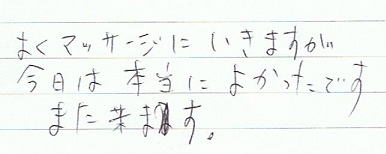 よくマッサージにいきますが
今日は本当によかったです
また来ます。